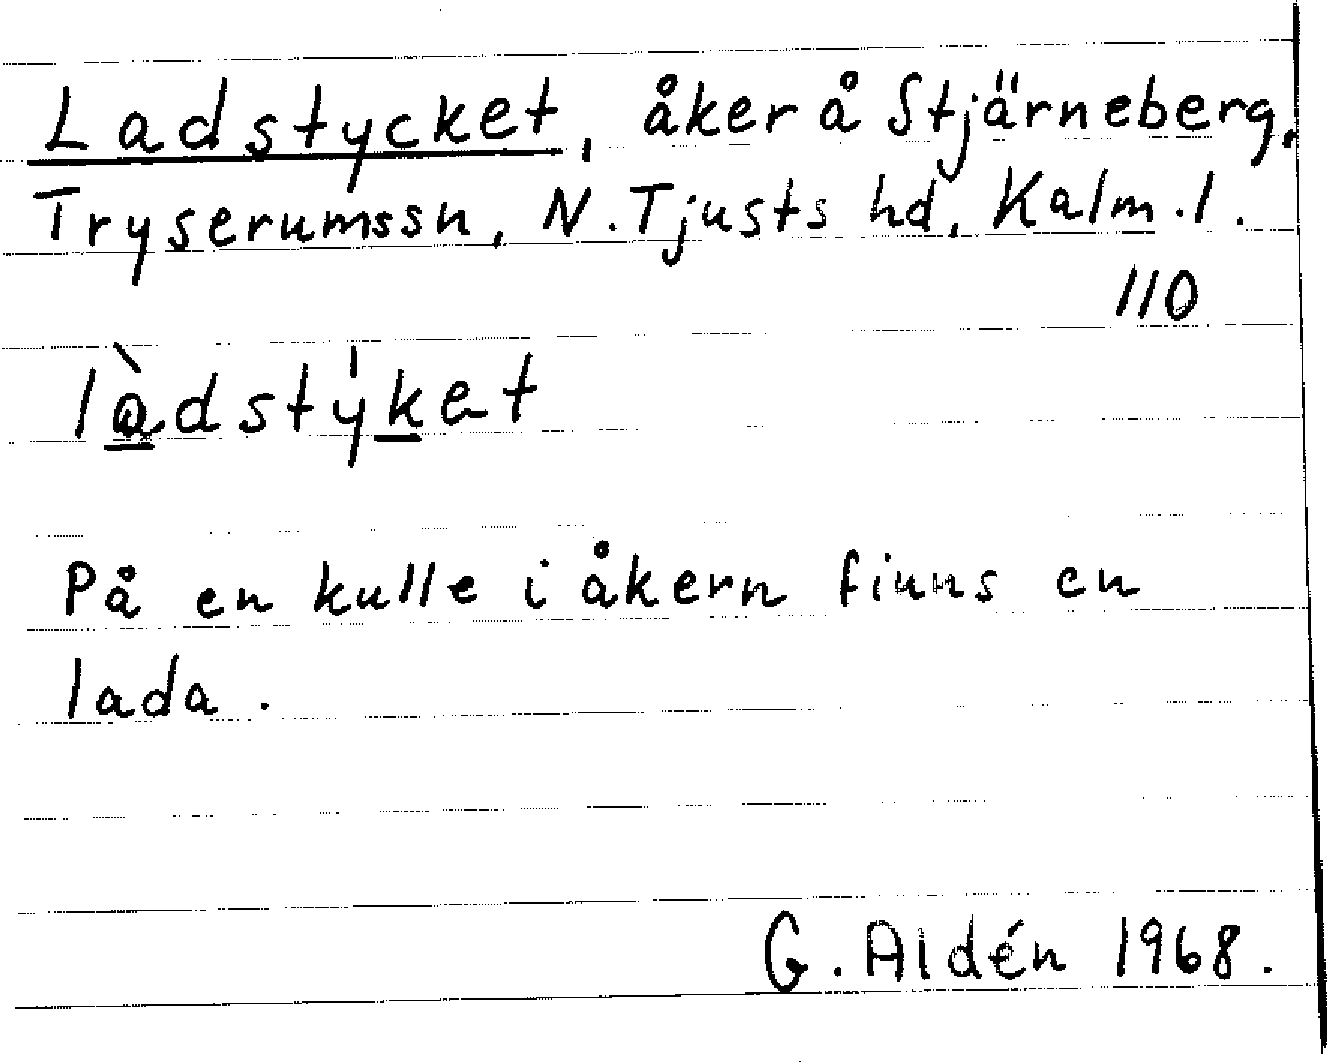 Ladstycket, åker å Stjärneberg,
Tryserumssn, N. Tjusts hd, Kalm. l.
110
làdstýket
På en kulle i åkern finns en
lada.
G. Aldén 1968.